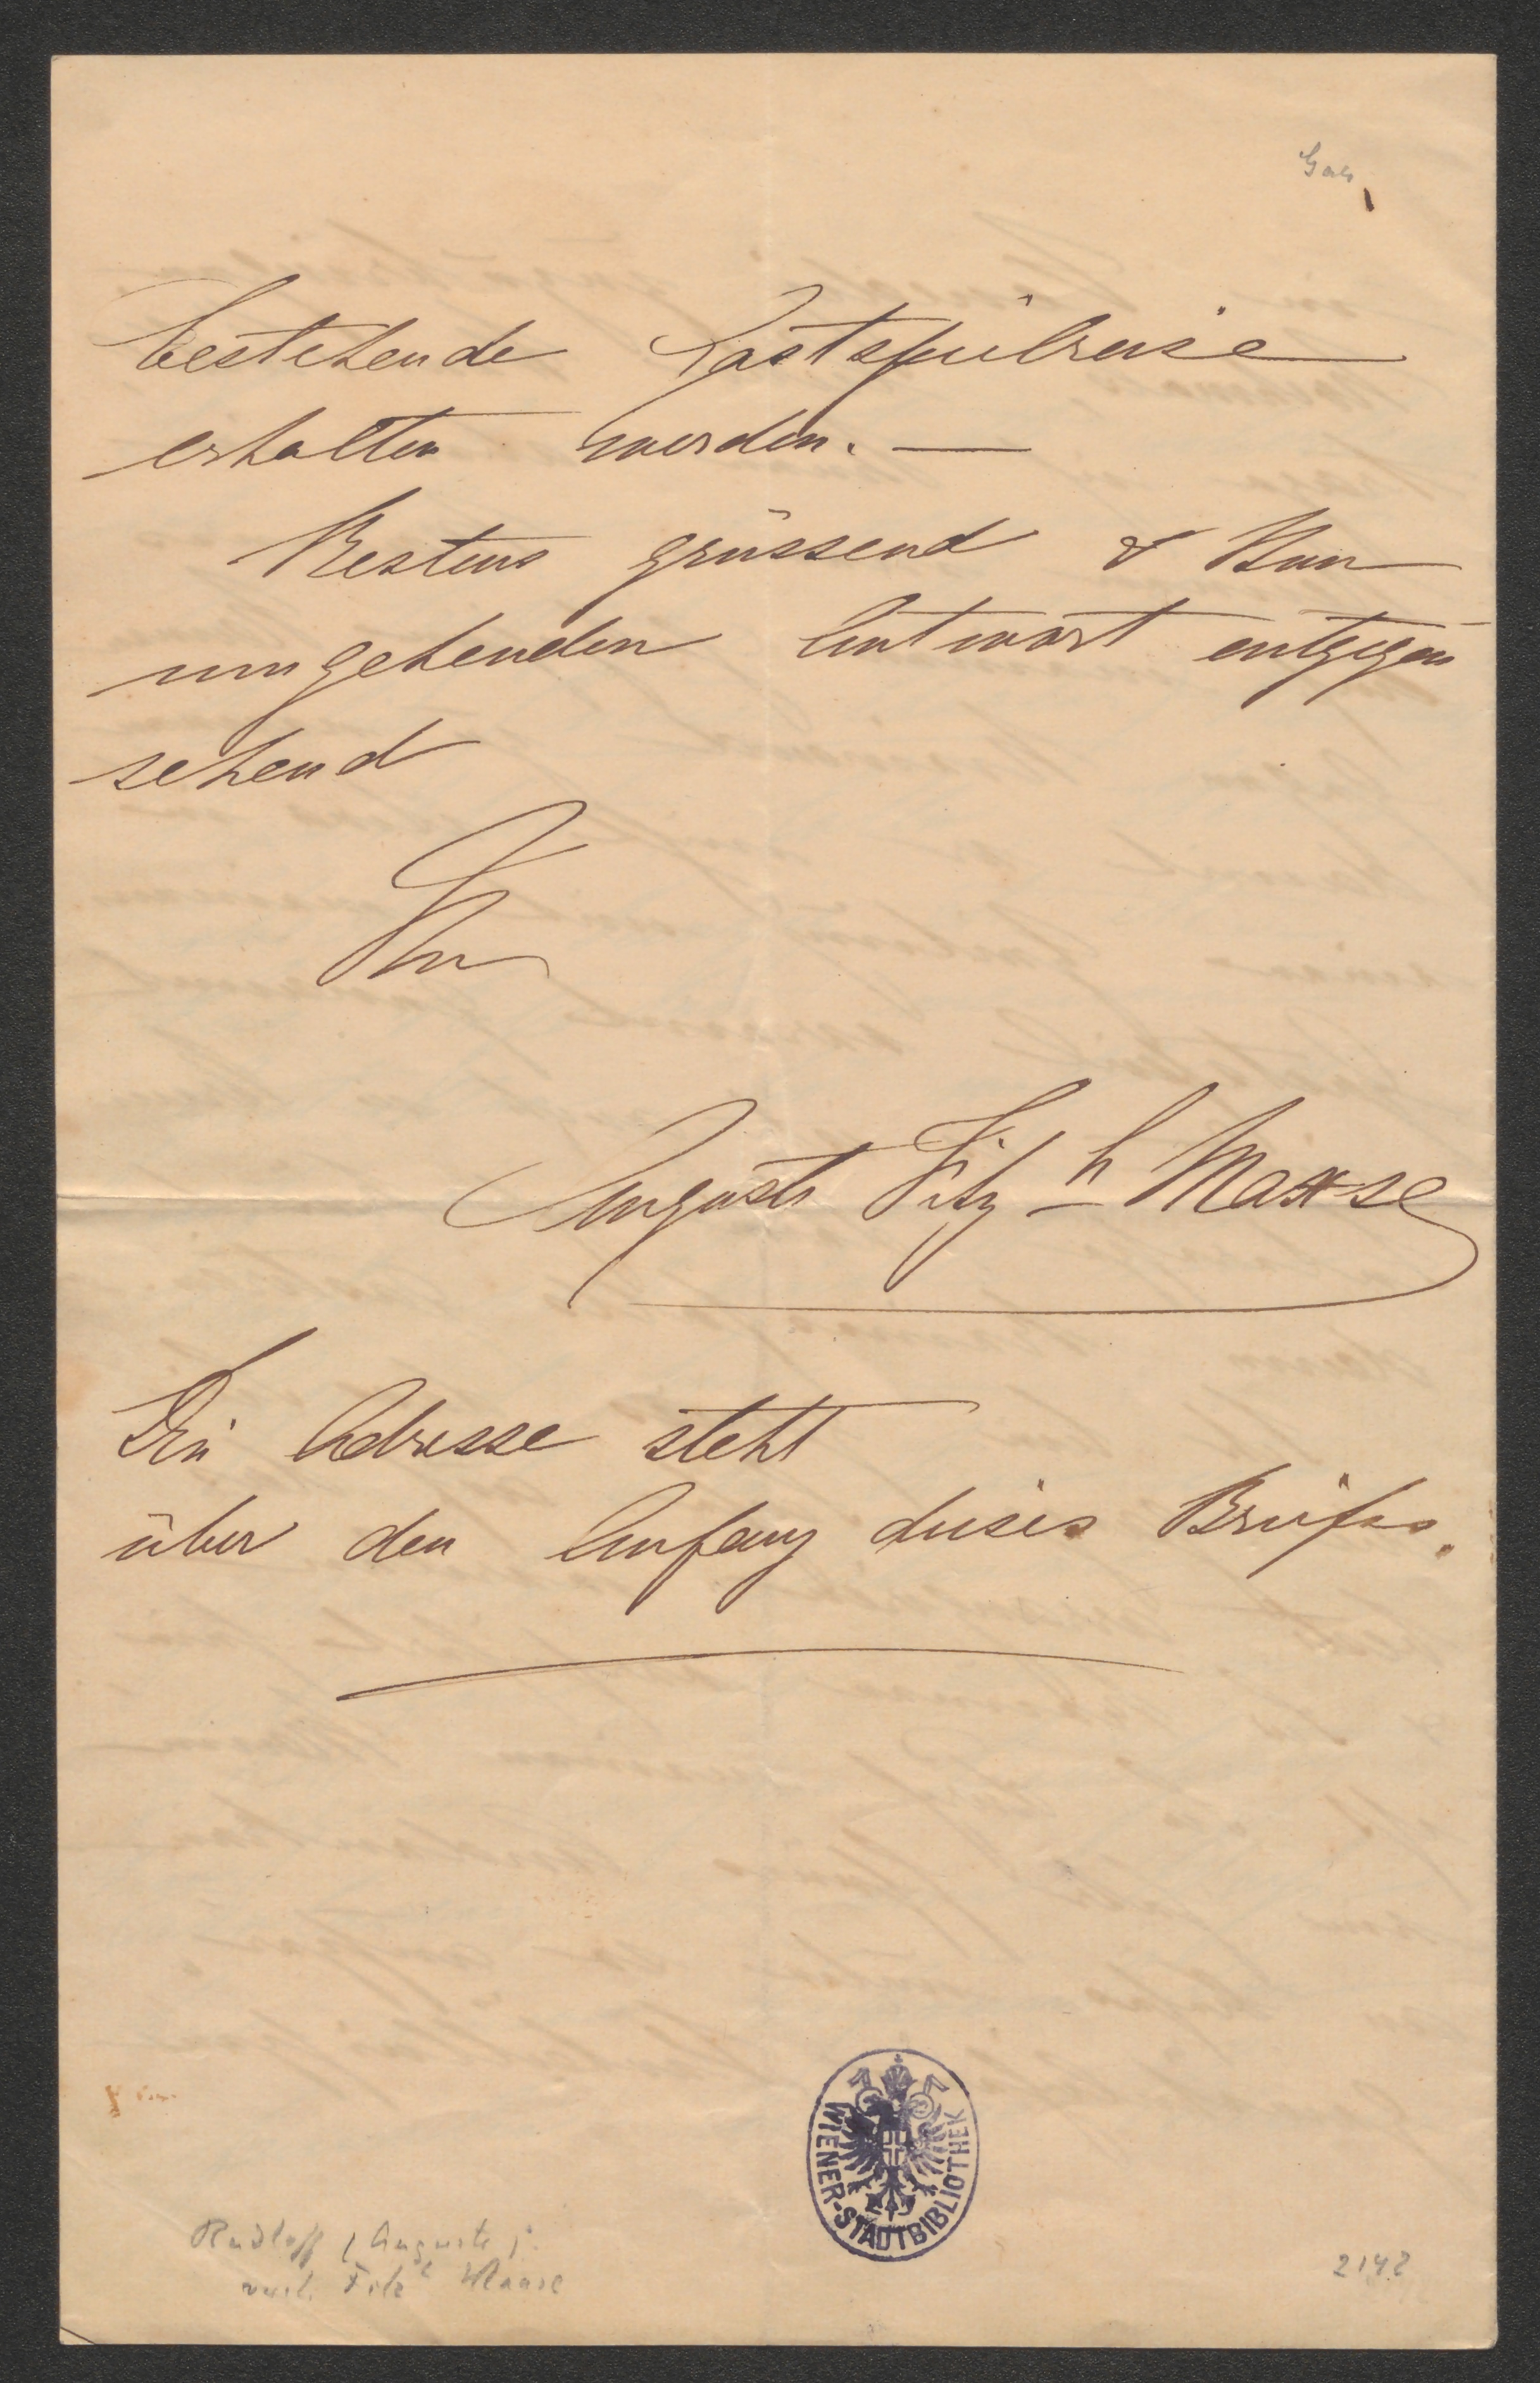 bestehende Gastspielreise
erhalten werden. —
Bestens grüssend & Ihrer
umgehenden Antwort entgegen
sehend
Ihre
Auguste Fitz h Maxse
Die Adresse steht
über den Anfang dieses Briefes.
WIENER-STADTBIBLIOTHEK
Rudloff (Auguste)
verh. Fitz h Maxse
2142